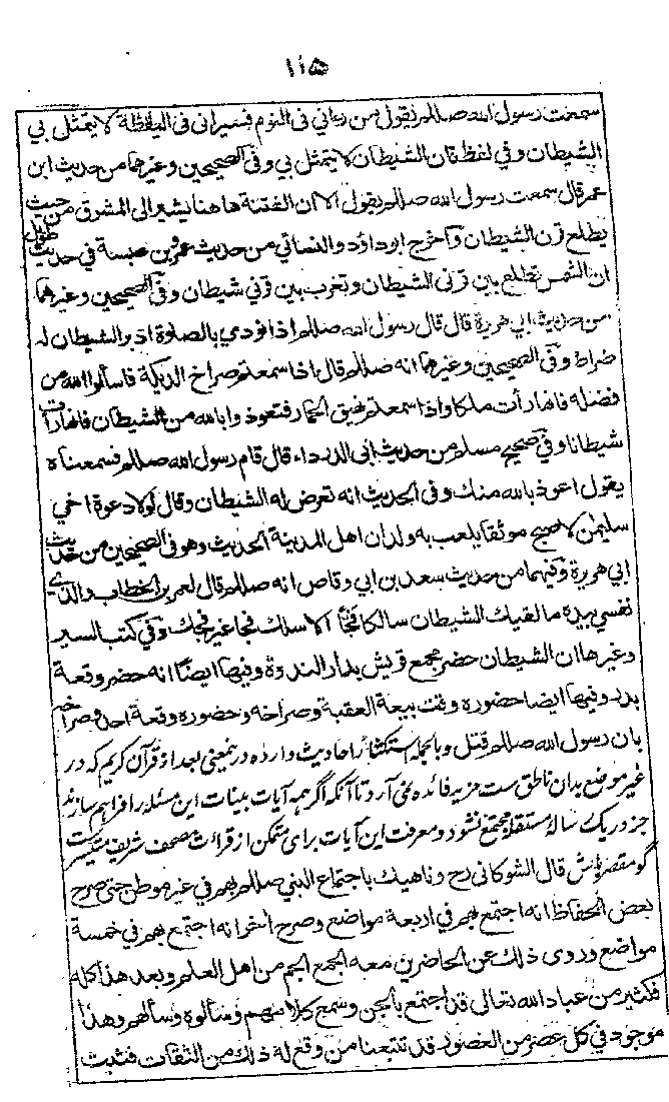 ١١٥
سمعت رسول الله صللم يقول من رءاني في النوم فسيراني في اليقظة لا يتمثل بي
الشيطان وفي لفظ فان الشيطان لا يتمثل بي وفي الصحيحين وغيرهما من حديث ابن
عمر قال سمعت رسول الله صللم يقول الا ان الفتنة هاهنا يشير الى المشرق من حيث
يطلع قرن الشيطان وأخرج ابو داؤد والنسائي من حديث عمرو بن عبسة في حديث طويل
ان الشمس تطلع بين قرني الشيطان وتغرب بين قرني شيطان وفي الصحيحين وغيرهما
من حديث ابي هريرة قال قال رسول الله صللم اذا نودي بالصلوة ادبر الشيطان له
ضراط وفي الصحيحين وغيرهما انه صللم قال اذا سمعتم صراخ الديكة فاسألوا الله من
فضله فانها رأت ملكا واذا سمعتم نهيق الحمار فتعوذوا بالله من الشيطان فانها رأت
شيطانا وفي صحيح مسلم من حديث ابى الدرداء قال قام رسول الله صللم فسمعناه
يقول اعوذ بالله منك وفى الحديث انه تعرض له الشيطان وقال لولا دعوة اخي
سليمن لاصبح موثقا يلعب به ولدان اهل المدينة الحديث وهو في الصحيحين من حديث
ابي هريرة وفيهما من حديث سعد بن ابي وقاص انه صللم قال لعمر بن الخطاب والذي
نفسي بيده ما لقيك الشيطان سالكا فجًّا الا سلك فجا غير فجك وفي كتب السير
وغيرها ان الشيطان حضر مجمع قريش بدار الندوة وفيها ايضًا انه حضر وقعة
بدر وفيها ايضا حضوره وقت بيعة العقبة وصراخه وحضوره وقعة احد وصراخه
بان رسول الله صللم قتل وبالجمله استكثار احاديث وارده درينمعني بعد از قرآن كريم كه در
غير موضع بدان ناطق ست مزيد فائده نمى آرد تا آنكه اگر همه آيات بينات اين مسئله را فراهم سازند
جز در يك رسالهٔ مستقله مجتمع نشود ومعرفت اين آيات براى متمكن از قرائت مصحف شريف متيسر ست
گو مقصر باش قال الشوكانى رح وناهيك باجتماع النبي صللم بهم في غير موطن حتى صرح
بعض الحفاظ انه اجتمع بهم في اربعة مواضع وصرح اخر انه اجتمع بهم في خمسة
مواضع وروى ذلك عن الحاضرين معه الجمع الجم من اهل العلم وبعد هذا كله
فكثير من عباد الله تعالى قد اجتمع بالجن وسمع كلامهم وسألوه وسألهم وهذا
موجود في كل عصر من العصور قد تتبعنا من وقع له ذلك من الثقات فثبت